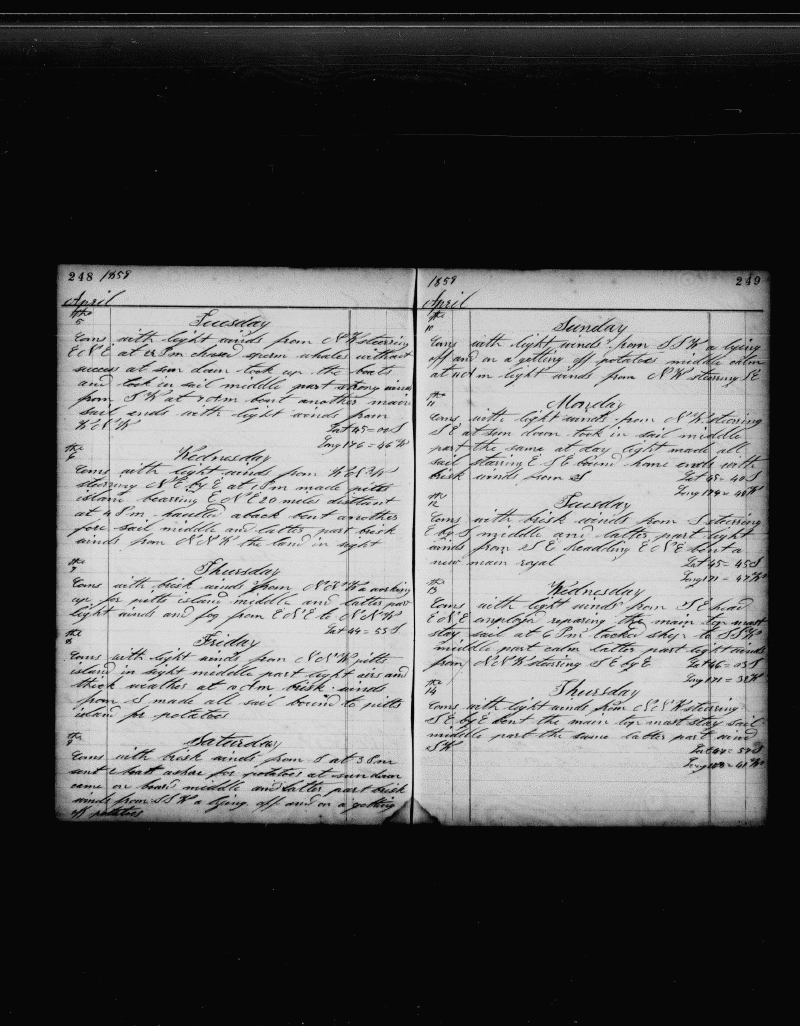 248 1859
April
the
5 Tuesday
Coms with light winds from NW steering
ENE at Pm chased sperm whales without
success at sun down took up the boats
and took in sail middle part strong winds
from SW at Am bent another main
sail ends with light winds from
WNW Lat 45=00S
Long 176=46W
the
6 Wednesday
Coms with light winds from WNW
steering NE by E at 1 Pm made pitts
island bearing ENE 20 miles distant
at 4 Pm hauled aback bent another
fore sail middle and latter part brisk
winds from NNW the land in sight
the
7 Thursday
Coms with brisk winds from NNW a working
up for pitts island middle and latter part
light winds and fog from ENE to NNW
Lat 44=55S
the
8 Friday
Coms with light winds from NNW pitts
island in sight middle part light airs and
thick weather at Am brisk winds
from S made all sail bound to pitts
island for potatoes
the
9 Saturday
Coms with brisk winds from S at 3 Pm
sent a boat ashore for potatoes at sun down
came on board middle and latter part brisk
winds from SSW a lying off and on a getting
off potatoes
1859 249
April
the
10 Sunday
Coms with light winds from SSW a lying
off and on a getting off potatoes middle calm
at Am light winds from NW steering SE
the
11 Monday
Coms with light winds from NW steering
SE at sun down took in sail middle
part the same at day light made all
sail steering E S E bound home ends with
brisk winds from S Lat 45=40S
Long 174=48W
the
12 Tuesday
Coms with brisk winds from S steering
E by S middle and latter part light
winds from SE heading ENE bent a
new main royal Lat 45=45S
Long 171=47W
the
13 Wednesday
Coms with light winds from SE head
ENE employed reparing the main top mast
stay sail at 6 Pm tacked ship to SSW
middle part calm latter part light winds
from NNW steering SE by E Lat 46=03S
Long 171=32W
the
14 Thursday
Coms with light winds from NNW steering
SE by E bent the main top mast stay sail
middle part the same latter part wind
SW Lat =57S
Long =41W